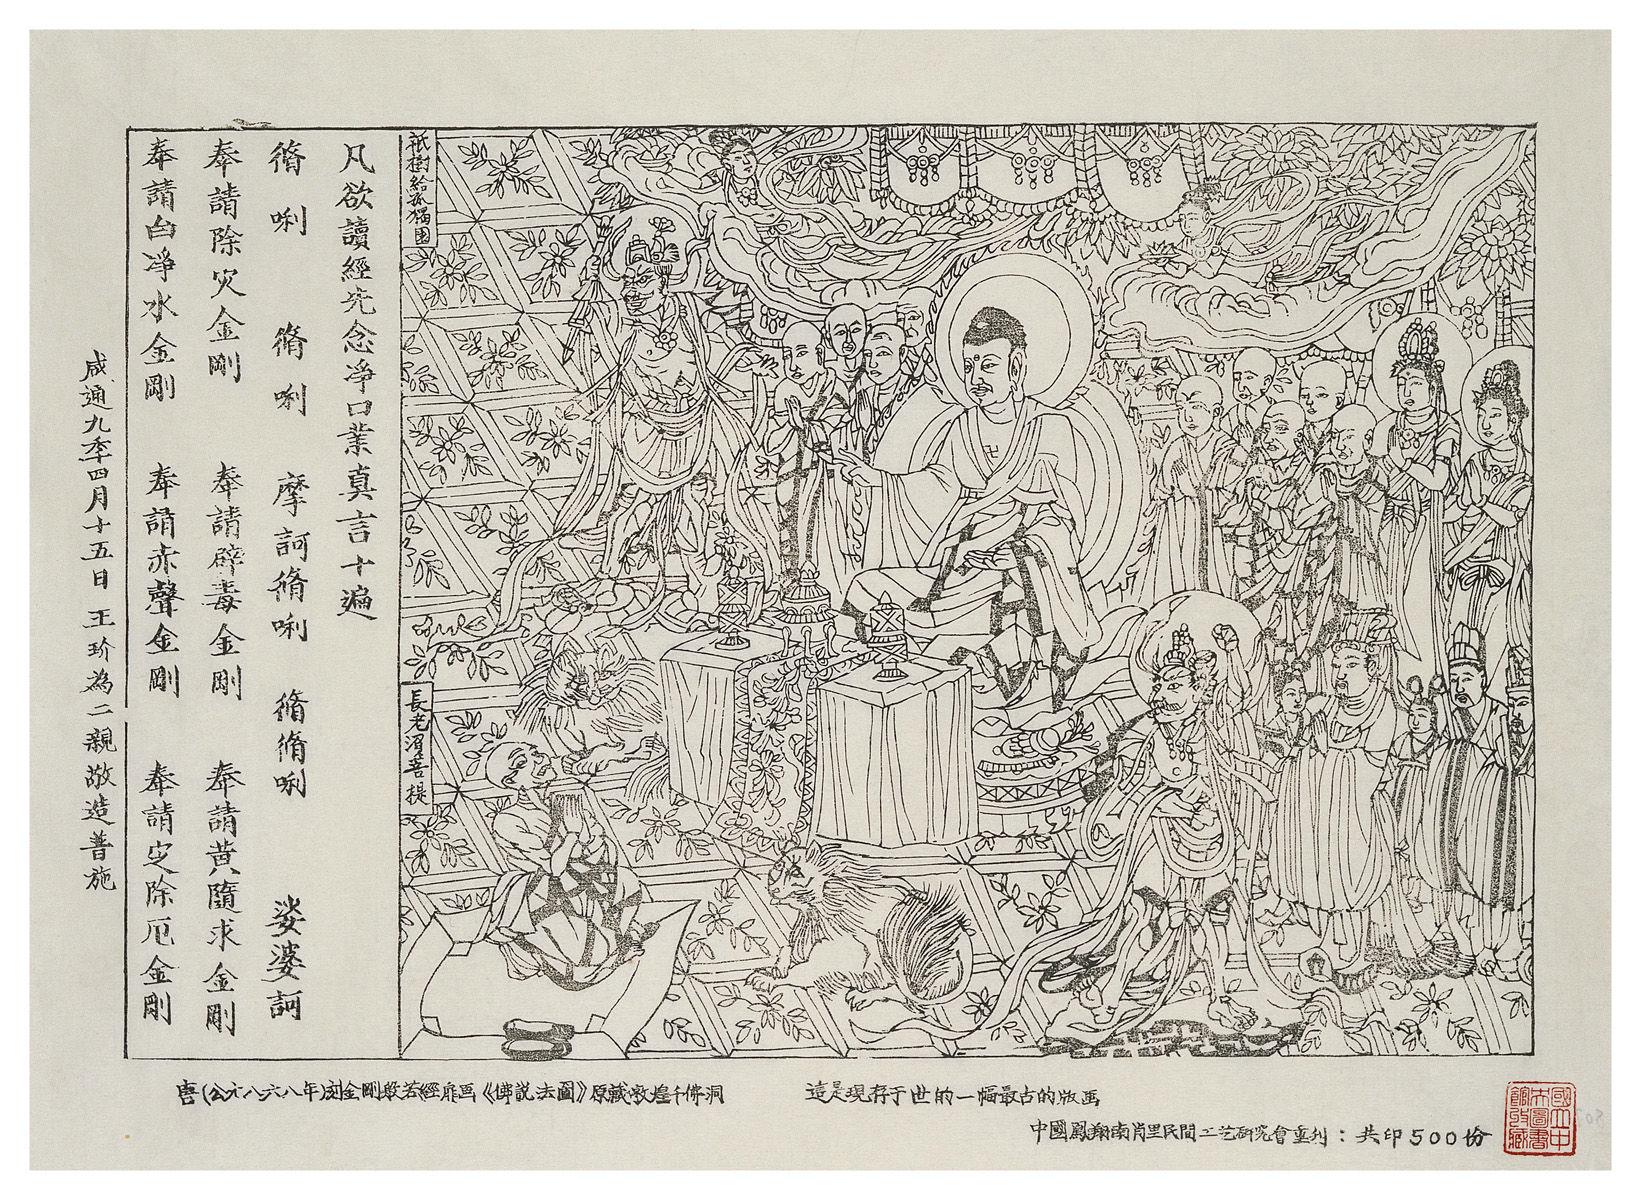 祇樹給孤獨園
長老須菩提
凡欲讀經先念淨口業真言十遍
脩唎 脩唎 摩訶脩唎 脩脩唎 娑婆訶
奉請除災金剛 奉請辟毒金剛 奉請黃隨求金剛
奉請白淨水金剛 奉請赤聲金剛 奉請定除厄金剛
咸通九季四月十五日 王玠為二親敬造普施
唐(公元八六八年)刻金剛般若經扉画《佛説法圖》原藏敦煌千佛洞
這是現存于世的一幅最古的版画
中國鳳翔南肖里民間工艺研究會重刊：共印500份
國立中央圖書館收藏